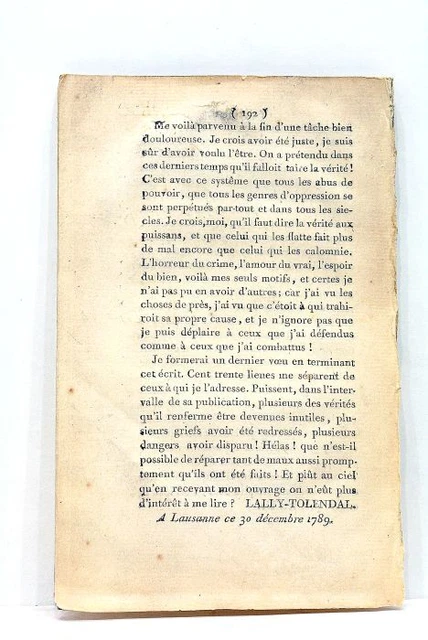 ( 192 )
Me voilà parvenu à la fin d'une tâche bien
douloureuse. Je crois avoir été juste, je suis
sûr d'avoir voulu l'être. On a prétendu dans
ces derniers temps qu'il falloit taire la vérité!
C'est avec ce systême que tous les abus de
pouvoir, que tous les genres d'oppression se
sont perpétués par-tout et dans tous les sie-
cles. Je crois, moi, qu'il faut dire la vérité aux
puissans, et que celui qui les flatte fait plus
de mal encore que celui qui les calomnie.
L'horreur du crime, l'amour du vrai, l'espoir
du bien, voilà mes seuls motifs, et certes je
n'ai pas pu en avoir d'autres; car j'ai vu les
choses de près, j'ai vu que c'étoit à qui trahi-
roit sa propre cause, et je n'ignore pas que
je puis déplaire à ceux que j'ai défendus
comme à ceux que j'ai combattus!
Je formerai un dernier vœu en terminant
cet écrit. Cent trente lieues me séparent de
ceux à qui je l'adresse. Puissent, dans l'inter-
valle de sa publication, plusieurs des vérités
qu'il renferme être devenues inutiles, plu-
sieurs griefs avoir été redressés, plusieurs
dangers avoir disparu! Hélas! que n'est-il
possible de réparer tant de maux aussi promp-
tement qu'ils ont été faits! Et plût au ciel
qu'en recevant mon ouvrage on n'eût plus
d'intérêt à me lire? LALLY-TOLENDAL.
A Lausanne ce 30 décembre 1789.